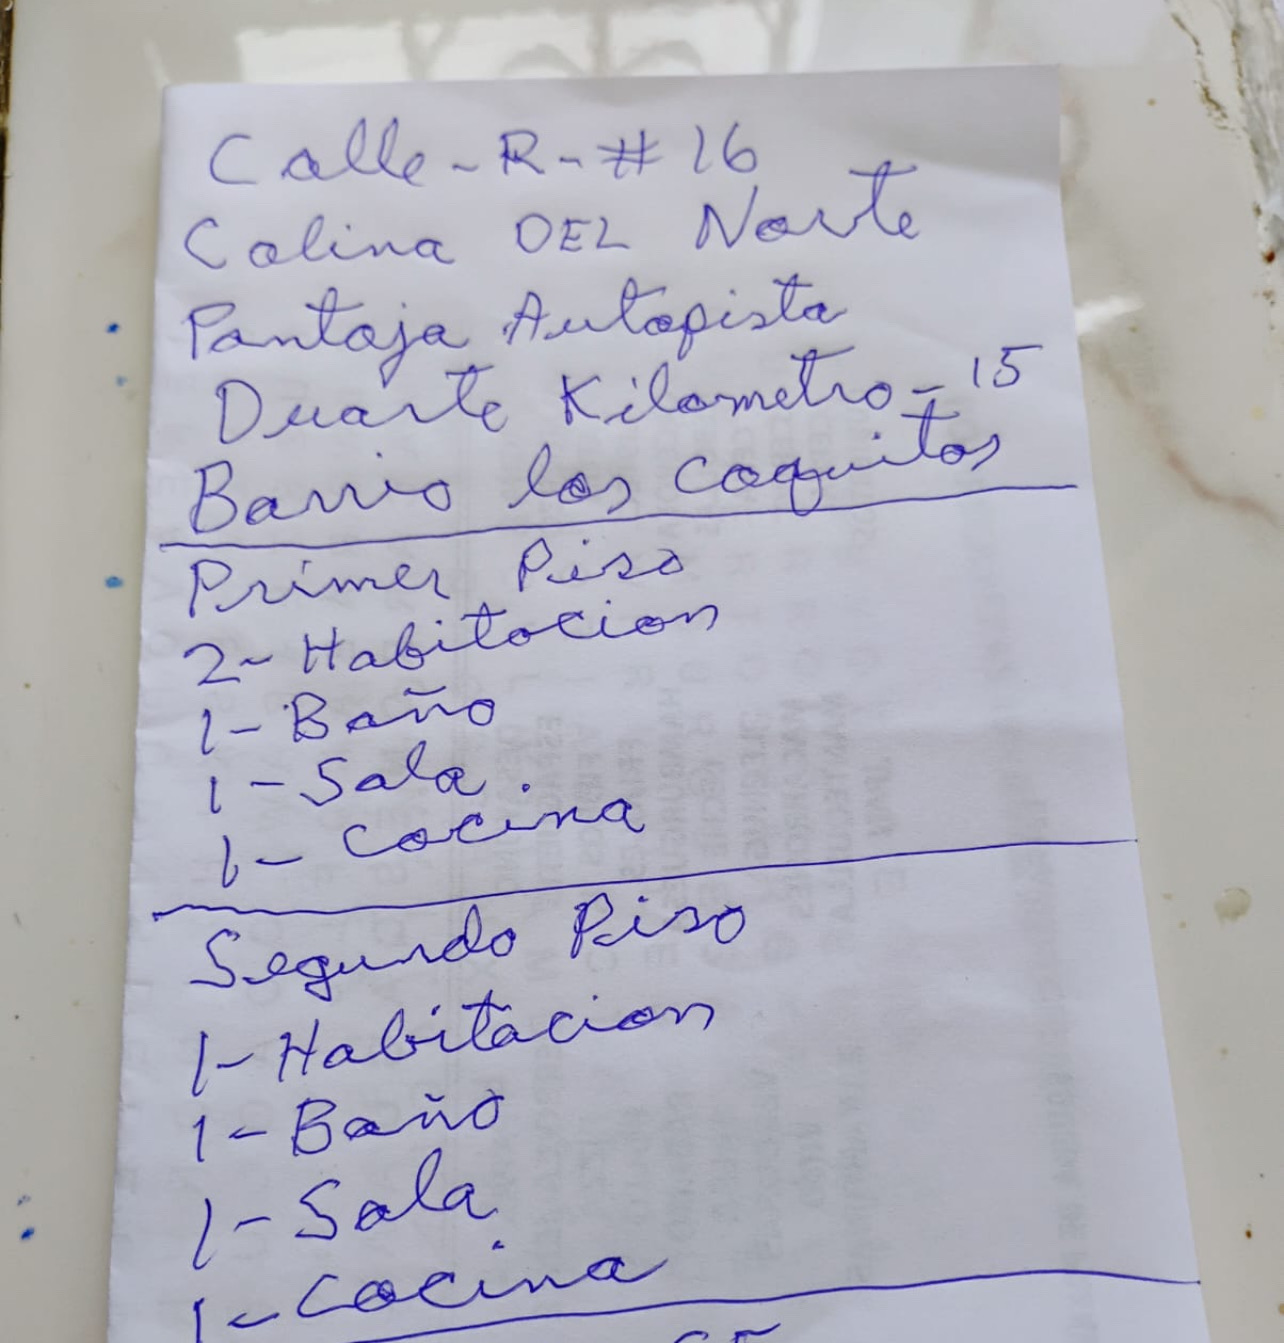 Calle - R - # 16
Colina DEL Norte
Pantoja Autopista
Duarte Kilometro - 15
Barrio los coquitos
Primer Piso
2 - Habitacion
1 - Baño
1 - Sala
1 - Cocina
Segundo Piso
1 - Habitacion
1 - Baño
1 - Sala
1 - Cocina